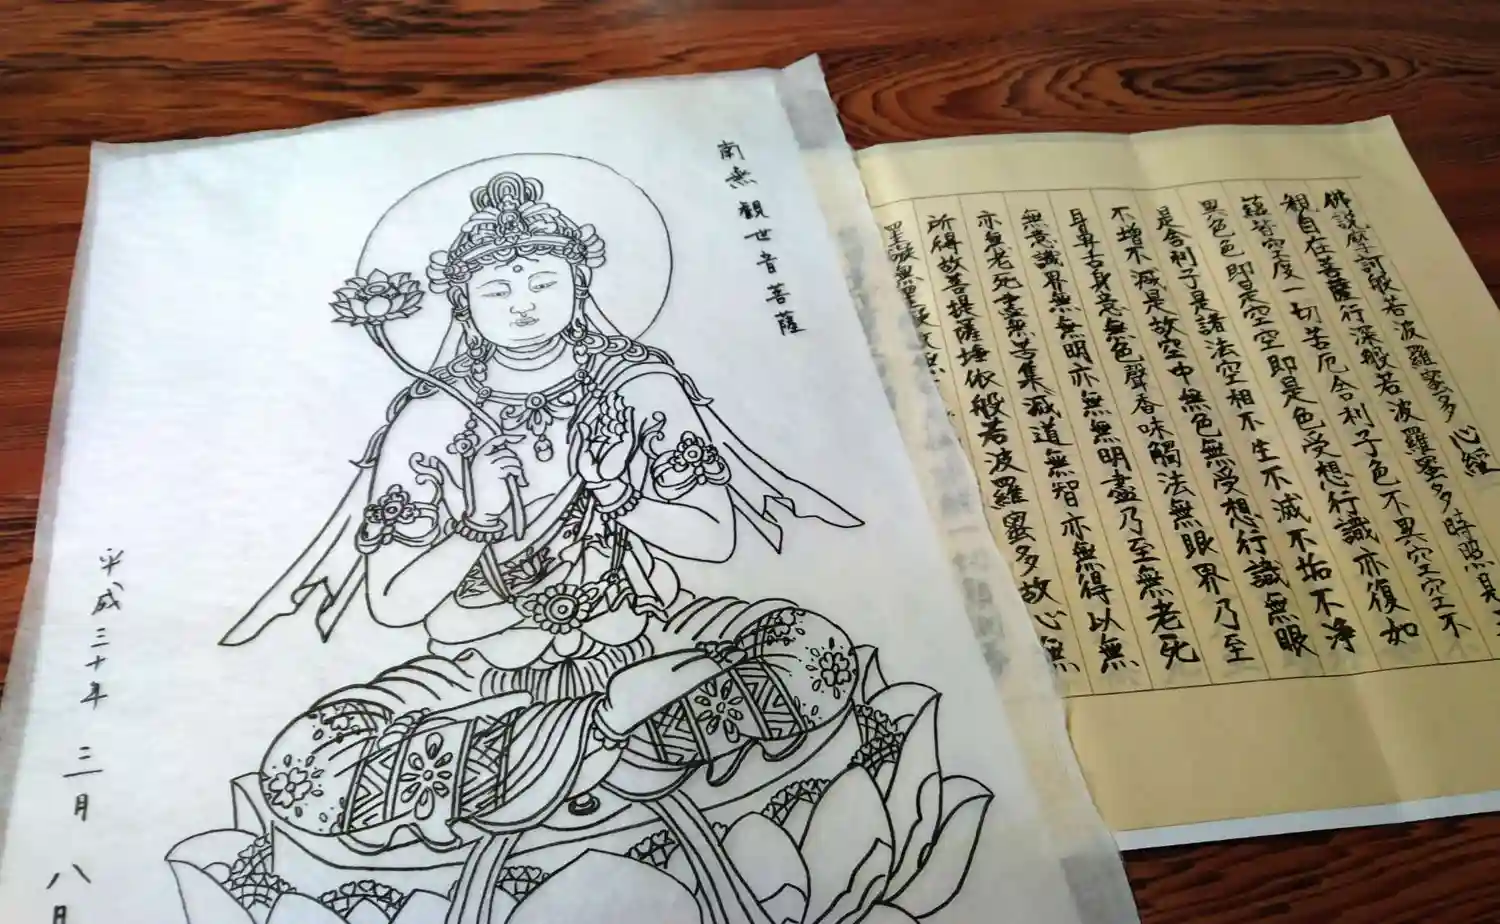 南無観世音菩薩
平成三十年 三月 八
佛説摩訶般若波羅蜜多心經
観自在菩薩行深般若波羅蜜多時照見
蘊皆空度一切苦厄舎利子色不異空空不
異色色即是空空即是色受想行識亦復如
是舎利子是諸法空相不生不滅不垢不浄
不増不減是故空中無色無受想行識無眼
耳鼻舌身意無色聲香味觸法無眼界乃至
無意識界無無明亦無無明盡乃至無老死
亦無老死盡無苦集滅道無智亦無得以無
所得故菩提薩埵依般若波羅蜜多故心無
罣礙無罣礙故無